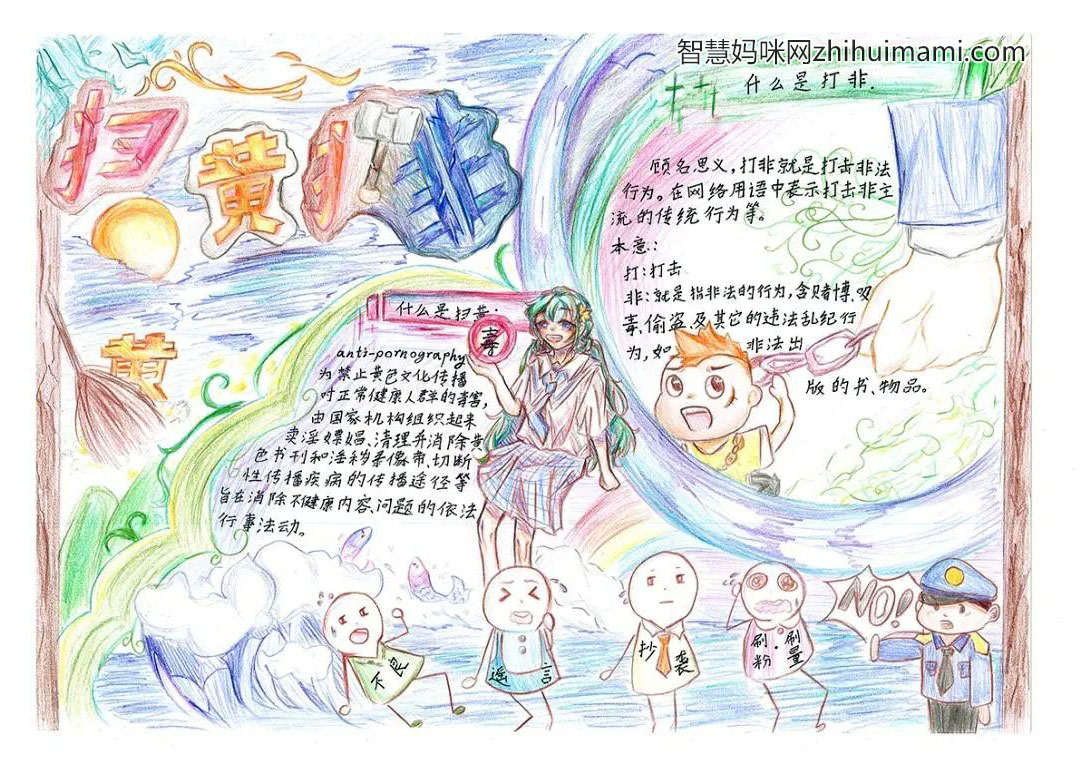 智慧妈咪网zhihuimami.com
扫黄打非
什么是打非.
顾名思义,打非就是打击非法
行为。在网络用语中表示打击非主
流的传统行为等。
本意:
打:打击
非:就是指非法的行为,含赌博、吸
毒、偷盗、及其它的违法乱纪行
为,如 非法出
版的书、物品。
黄
什么是扫黄.
毒
anti-pornography
为禁止黄色文化传播
对正常健康人群的毒害,
由国家机构组织起来
卖淫嫖娼、清理并消除黄
色书刊和淫秽录像带、切断
性传播疾病的传播途径等
旨在消除不健康内容、问题的依法
行事法动。
不良
谣言
抄袭
刷粉·刷量
NO!